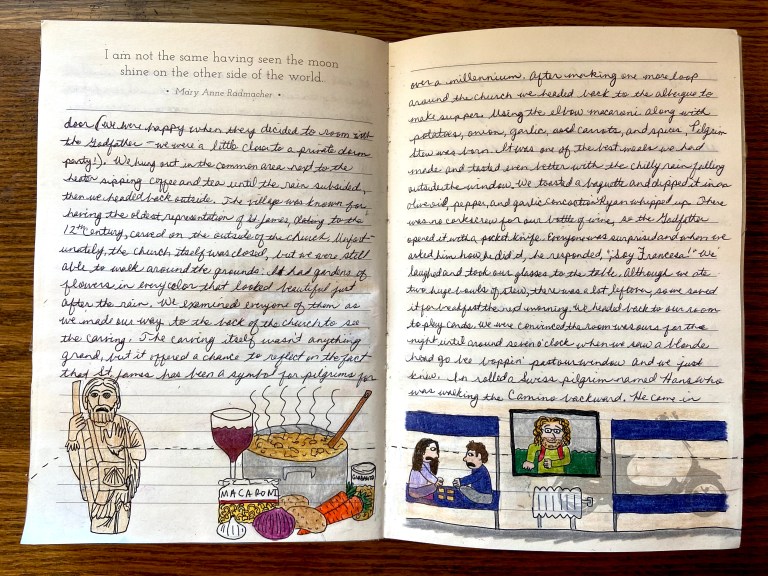 I am not the same having seen the moon
shine on the other side of the world.
• Mary Anne Radmacher •
door (we were happy when they decided to room with
the Godfather – we were a little closer to a private dorm
party!). We hung out in the common area next to the
heater sipping coffee and tea until the rain subsided,
then we headed back outside. The village was known for
having the oldest representation of St James, dating to the
12th Century, carved on the outside of the church. Unfort-
unatily, the church itself was closed, but we were still
able to walk around the grounds. It had gardens of
flowers in every color that looked beautiful just
after the rain. We examined everyone of them as
we made our way to the back of the church to see
the carving. The carving itself wasn't anything
grand, but it offered a chance to reflect on the fact
that St. James has been a symbol for pilgrims for
MACARONI
over a millennium. After making one more loop
around the church we headed back to the albergue to
make supper. Using the elbow macaroni along with
potatoes, onion, garlic, and carrots, and spices, Pilgrim
Stew was born. It was one of the best meals we had
made and tasted even better with the chilly rain falling
outside the window. We toasted a baguette and dipped it in an
olive oil, pepper, and garlic concoction Ryan whipped up. There
was no corkscrew for our bottle of wine, so the Godfather
opened it with a pocket knife. Everyone was surprised and when we
asked him how he did it, he responded, "¡Soy Francesa!" We
laughed and took our glasses to the table. Although we ate
two huge bowls of stew, there was a lot leftover, so we saved
it for breakfast the next morning. We headed back to our room
to play cards. We were convinced the room was ours for the
night until around seven o'clock when we saw a blonde
head go bee boppin' past our window and we just
knew. In rolled a Swiss pilgrim named Hans who
was walking the Camino backward. He came in